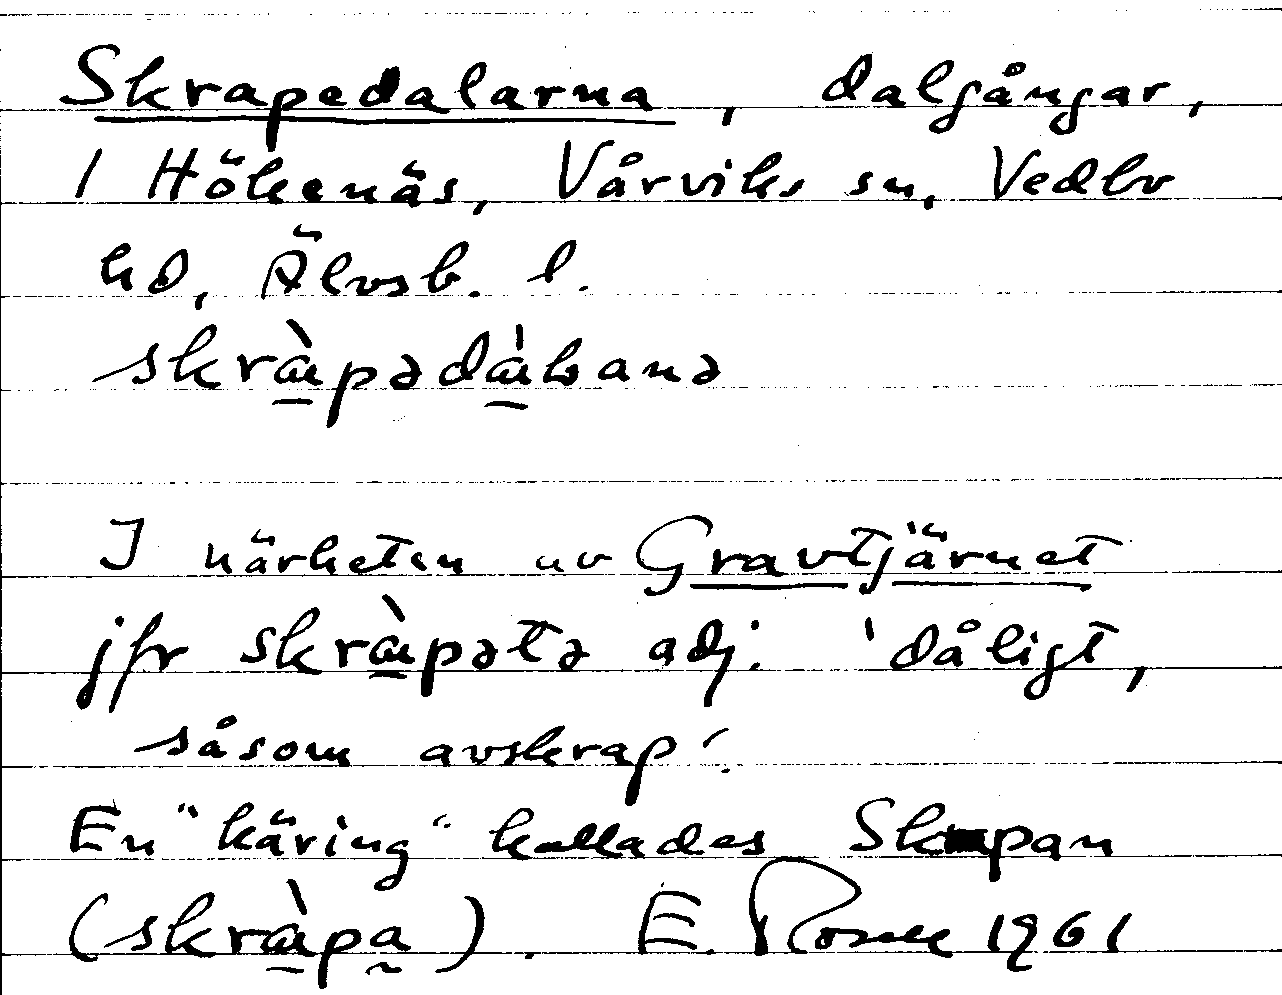 Skrapedalarna, dalgångar,
1 Hökenäs, Vårviks sn, Vedbo
hd, Älvsb. l.
skràpədàlana
I närheten av Gravtjärnet
jfr skràpətə adj. 'dåligt,
såsom avskrap'.
En "käring" kallades Skrapan
(skràpa). E. 1961